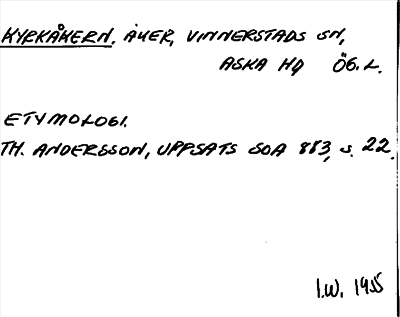 KYRKÅKERN, ÅKER, VINNERSTADS SN,
ASKA HD ÖG. L.
ETYMOLOGI.
TH. ANDERSSON, UPPSATS SOA 883, s. 22.
I.W. 1955